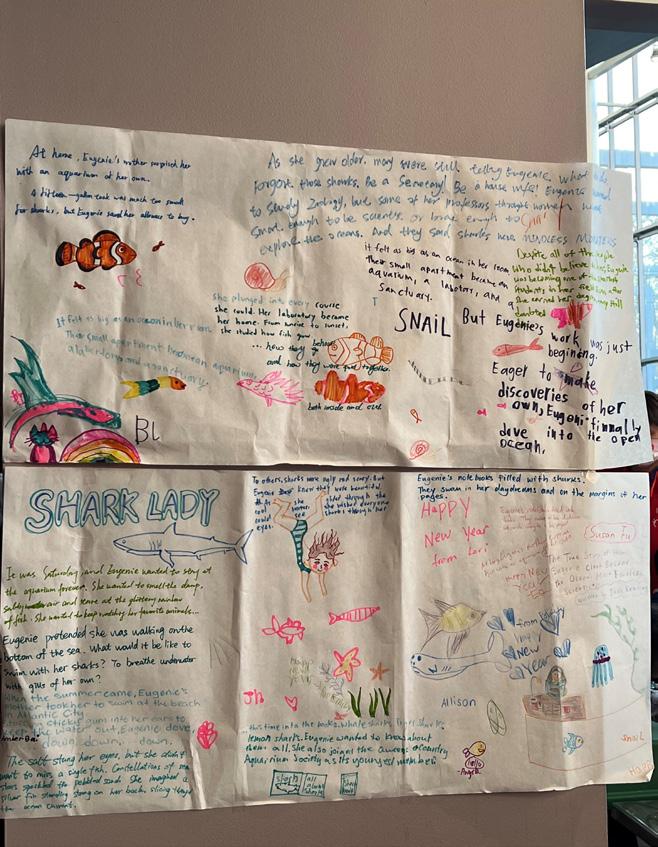 At home, Eugenie's mother surprised her
with an aquarium of her own.
A fifteen-gallon tank was much too small
for sharks, but Eugenie used her allowance to buy.
As she grew older, many were still telling Eugenie, what to do,
Forget those sharks. Be a Secretary! Be a house wife! Eugenie wanted
to study Zoology, but some of her professors thought women weren't
smart enough to be scientists or brave enough to
explore the oceans. And they said sharks were MINDLESS MONSTERS
it felt as big as an ocean in her room
Their small apartment became an
aquarium, a laboratory, and a
Sanctuary.
Despite all of the people
who didn't believe Eugenie
was becoming one of
students in her field
she earned her degree
doubted
She plunged into every course
she could. Her laboratory became
her home. From sunrise to sunset,
she studied how fish
... how they behave
and how they were put together
both inside and out.
It felt as big as an ocean in her room
Their small apartment became an aquarium
a laboratory and a sanctuary
SNAIL
But Eugenie's
work was just
beginning.
Eager to make
discoveries of her
own, Eugenie finnally
dove into the open
ocean.
BL
SHARK LADY
It was Saturday, and Eugenie wanted to stay at
the aquarium forever. She wanted to smell the damp,
salty air and stare at the glittery rainbow
of fish. She wanted to keep watching her favorite animals...
Eugenie pretended she was walking on the
bottom of the sea. What would it be like to
Swim with her sharks? To breathe underwater
with gills of her own?
When the summer came, Eugenie's
mother took her to swim at the beach
in Atlantic City
sticky gum into her ears to
keep the water out, Eugenie dove,
down, down, down.
The salt stung her eyes, but she didn't
want to miss a single fish. Constellations of sea
stars speckled the pebbled sand. She imagined a
silver fin standing strong on her back, slicing through
the ocean current.
To others, sharks were ugly and scary. But
Eugenie knew they were beautiful
As she
cool water
could see
eyes.
slided through the
she wished everyone
sharks through her
Jh
this time into the books. Whale sharks, Tiger Sharks,
lemon sharks. Eugenie wanted to know about
them all. She also joined the Queens County
Aquarium Society as its youngest member.
Eugenie's notebooks filled with sharks.
They swam in her daydreams and on the margins of her
pages.
HAPPY
New Year
from Lori
Susan Fu
The True Story of How
Eugenie Clark Became
the Ocean's Most Fearless
Scientist
from
Happy
New
Year
Allison
hello
-Angela
SNAIL
Happ